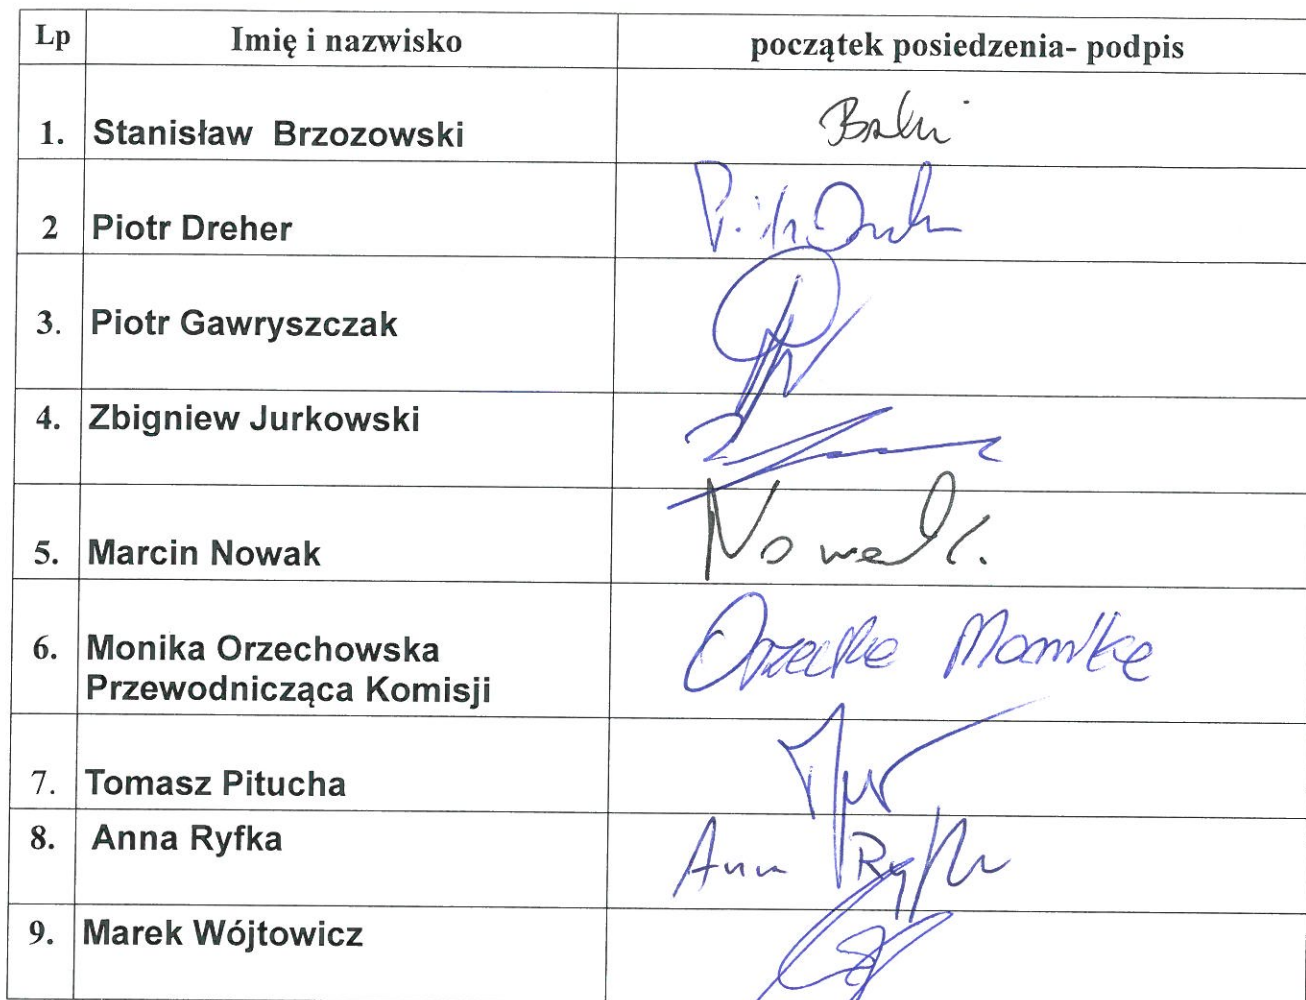 Lp Imię i nazwisko początek posiedzenia- podpis
1. Stanisław Brzozowski
2 Piotr Dreher
3. Piotr Gawryszczak
4. Zbigniew Jurkowski
5. Marcin Nowak Nowak
6. Monika Orzechowska
Przewodnicząca Komisji
7. Tomasz Pitucha
8. Anna Ryfka Anna Ryfka
9. Marek Wójtowicz